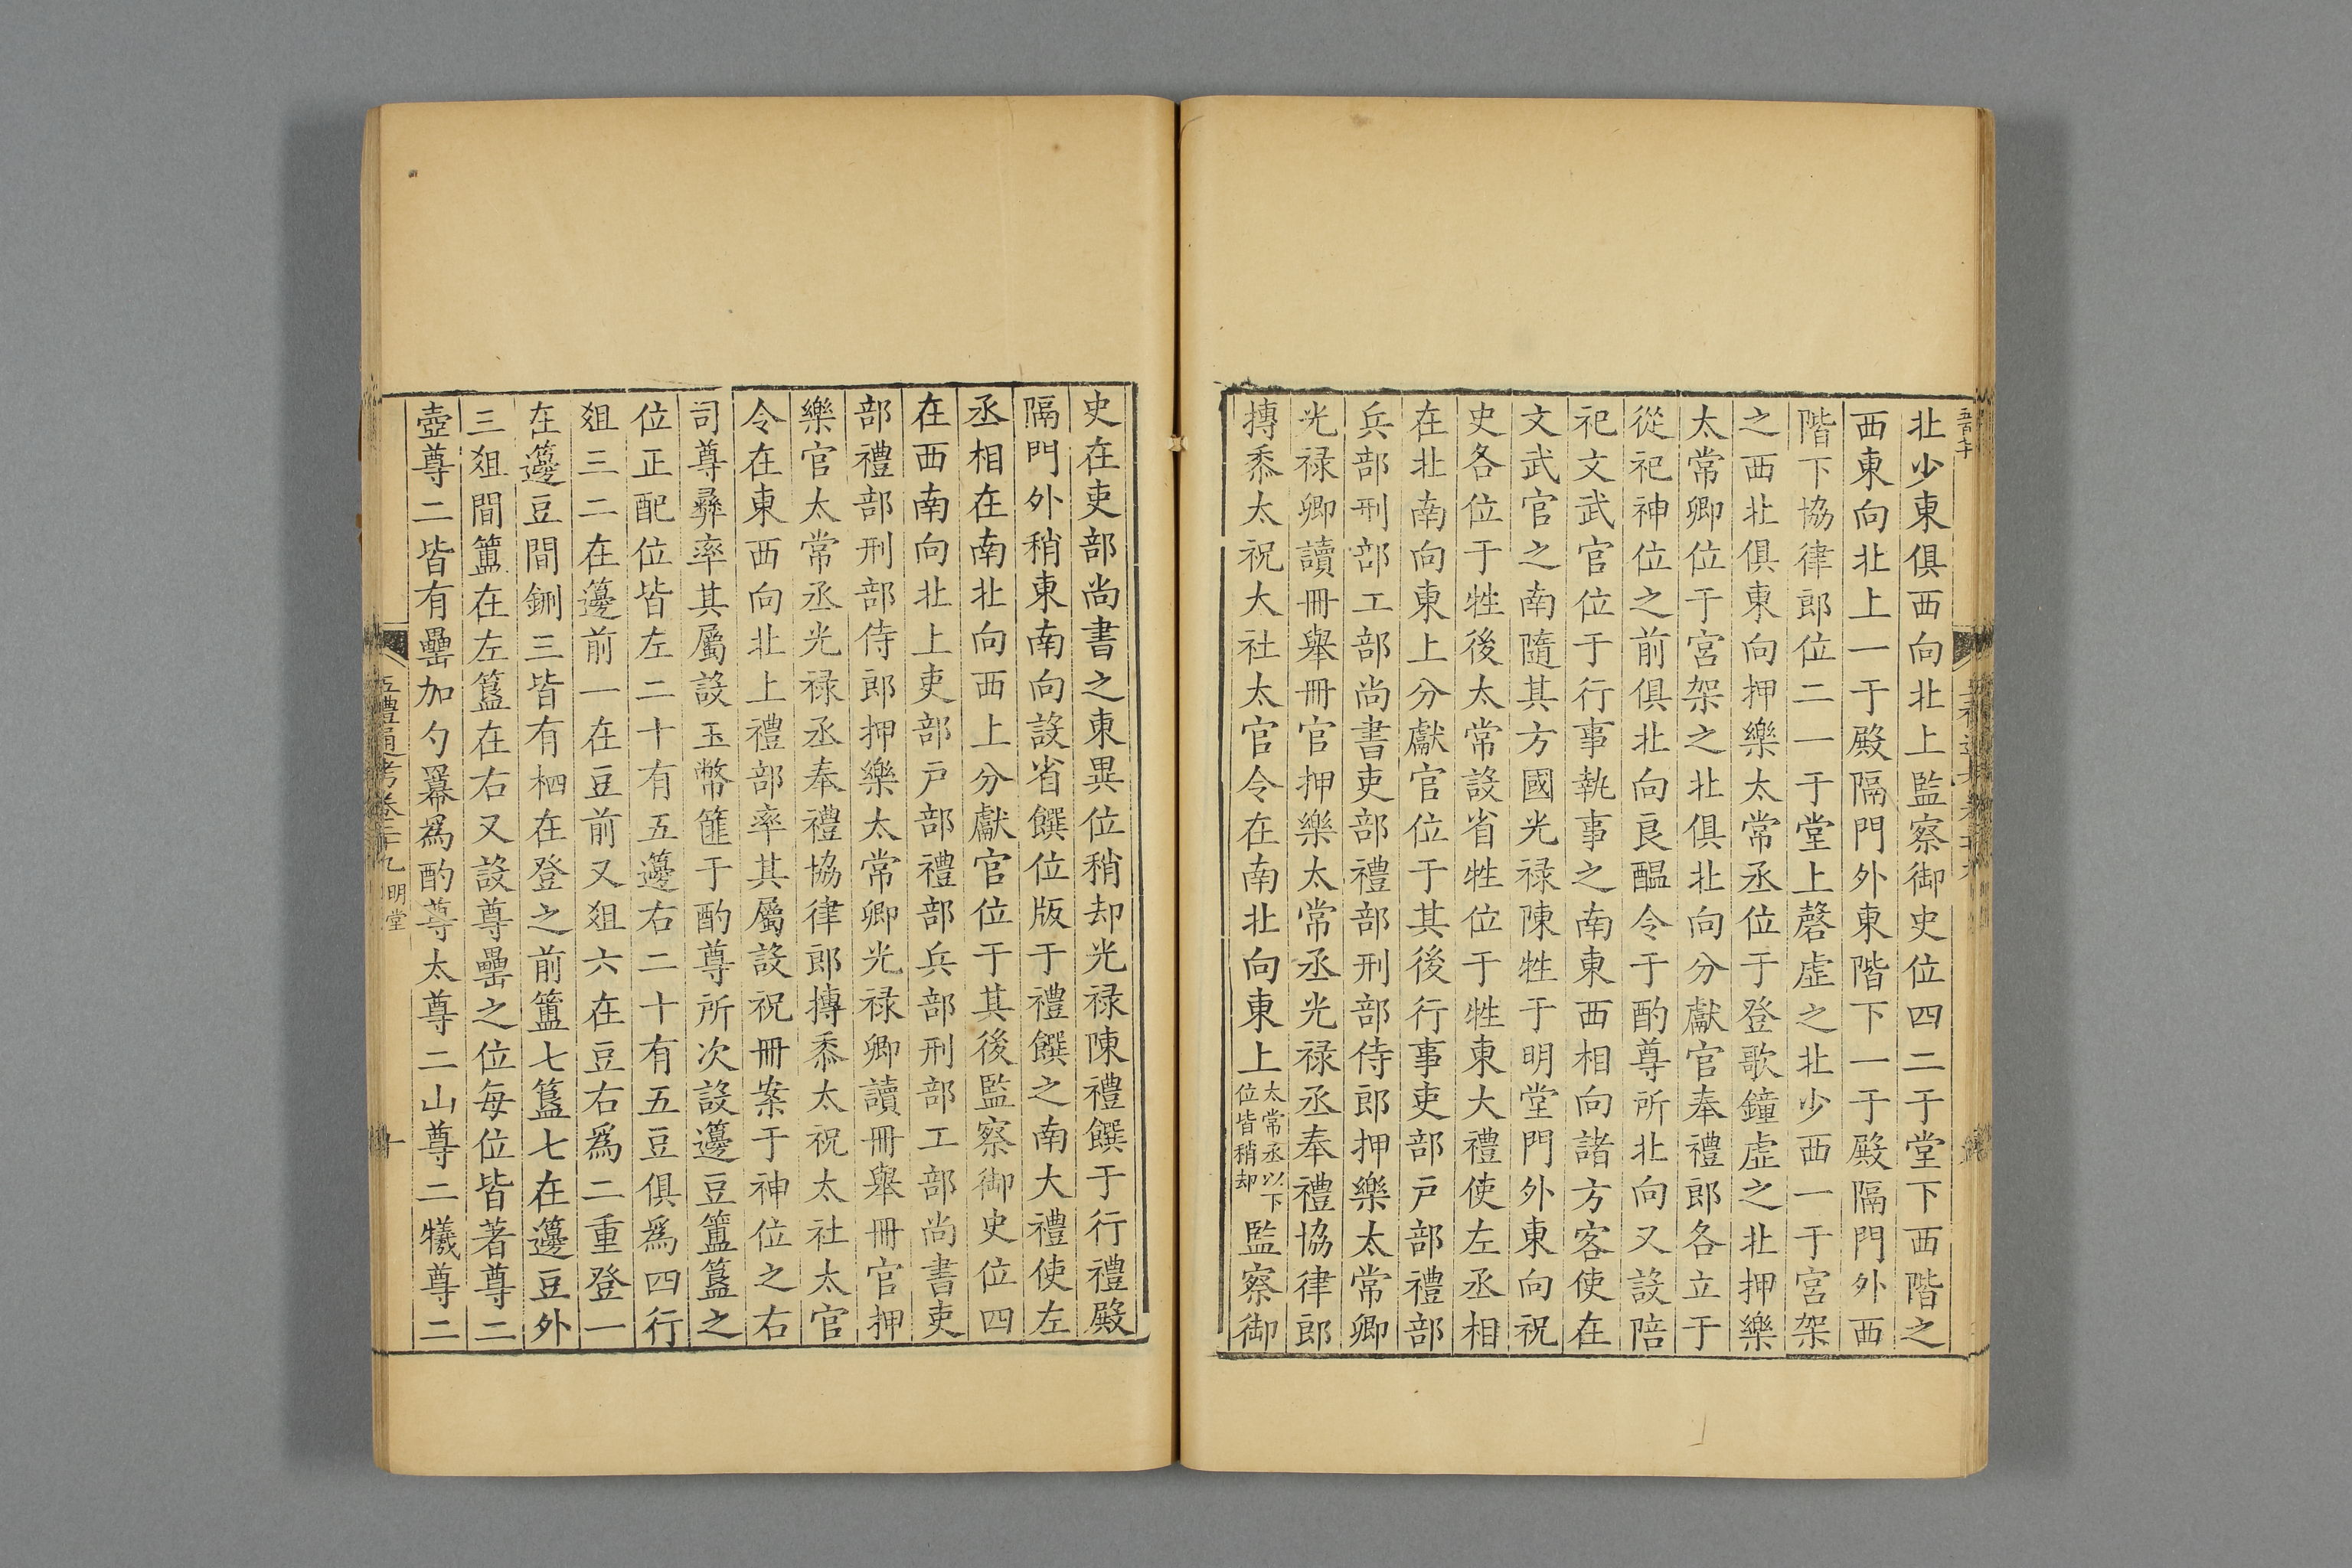 北少東俱西向北上監察御史位四二于堂下西階之
西東向北上一于殿隔門外東階下一于殿隔門外西
階下協律郎位二一于堂上磬虡之北少西一于宮架
之西北俱東向押樂太常丞位于登歌鐘虡之北押樂
太常卿位于宮架之北俱北向分獻官奉禮郎各立于
從祀神位之前俱北向良醞令于酌尊所北向又設陪
祀文武官位于行事執事之南東西相向諸方客使在
文武官之南隨其方國光禄陳牲于明堂門外東向祝
史各位于牲後太常設省牲位于牲東大禮使左丞相
在北南向東上分獻官位于其後行事吏部戸部禮部
兵部刑部工部尚書吏部禮部刑部侍郎押樂太常卿
光禄卿讀冊舉冊官押樂太常丞光禄丞奉禮協律郎
摶黍太祝太社太官令在南北向東上太常丞以下位皆稍却監察御
史在吏部尚書之東異位稍却光禄陳禮饌于行禮殿
隔門外稍東南向設省饌位版于禮饌之南大禮使左
丞相在南北向西上分獻官位于其後監察御史位四
在西南向北上吏部戸部禮部兵部刑部工部尚書吏
部禮部刑部侍郎押樂太常卿光禄卿讀冊舉冊官押
樂官太常丞光禄丞奉禮協律郎摶黍太祝太社太官
令在東西向北上禮部率其屬設祝冊案于神位之右
司尊彝率其屬設玉幣篚于酌尊所次設籩豆簠簋之
位正配位皆左二十有五籩右二十有五豆俱爲四行
俎三二在籩前一在豆前又俎六在豆右爲二重登一
在籩豆間鉶三皆有柶在登之前簠七簋七在籩豆外
三俎間簠在左簋在右又設尊罍之位每位皆著尊二
壺尊二皆有罍加勺羃爲酌尊太尊二山尊二犧尊二
五禮通考卷二十九 明堂
十